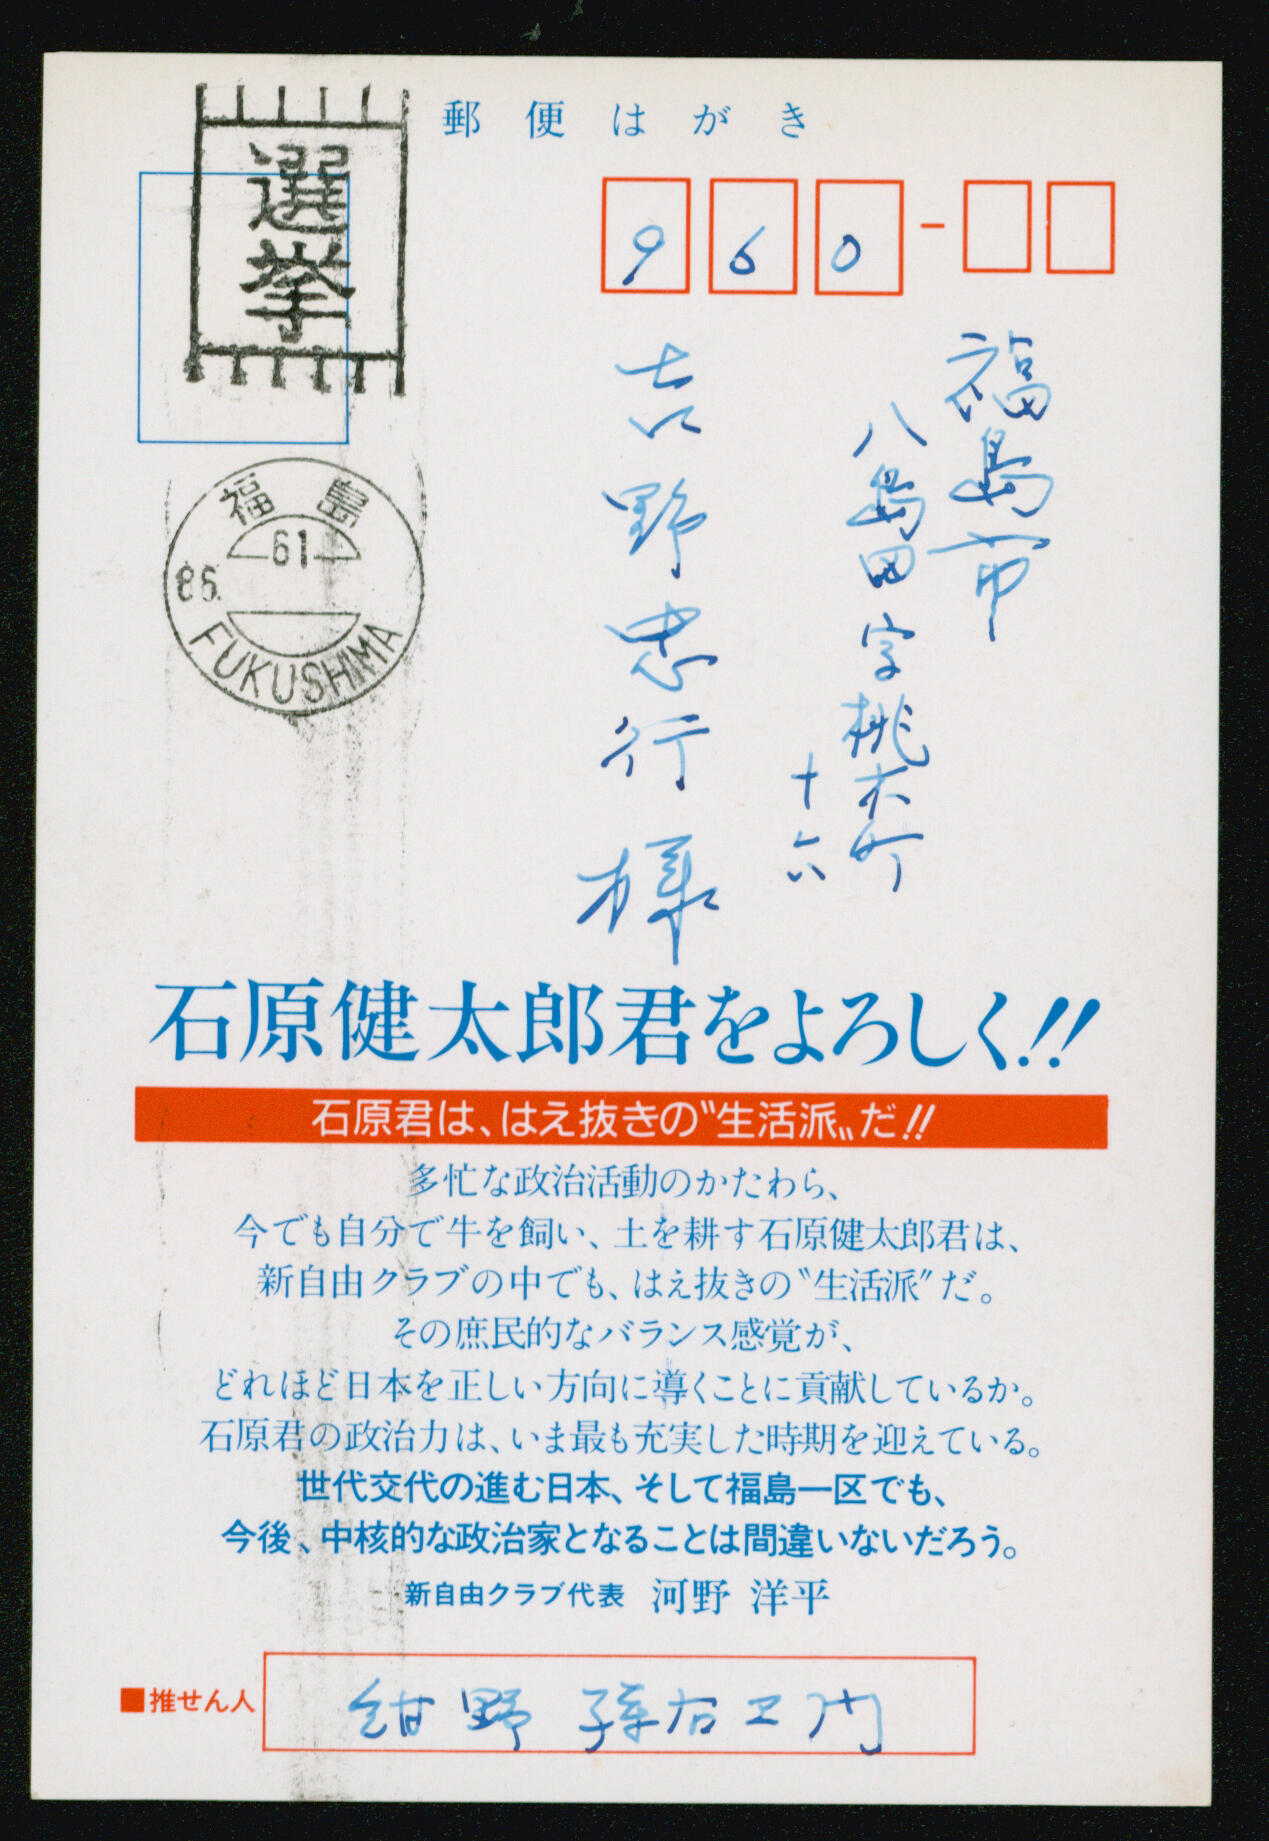 郵便はがき
選挙
960-
福島市
八島田字桃木町
十六
吉野忠行様
福島
61
86.
FUKUSHIMA
石原健太郎君をよろしく!!
石原君は、はえ抜きの〝生活派〟だ!!
多忙な政治活動のかたわら、
今でも自分で牛を飼い、土を耕す石原健太郎君は、
新自由クラブの中でも、はえ抜きの〝生活派〟だ。
その庶民的なバランス感覚が、
どれほど日本を正しい方向に導くことに貢献しているか。
石原君の政治力は、いま最も充実した時期を迎えている。
世代交代の進む日本、そして福島一区でも、
今後、中核的な政治家となることは間違いないだろう。
新自由クラブ代表 河野 洋平
■推せん人
紺野 孫右エ門